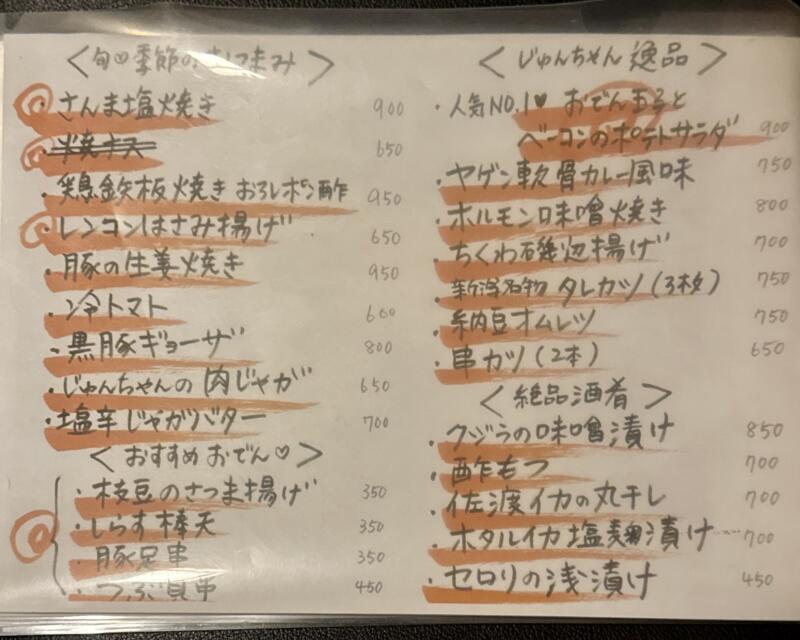 <旬♡季節のおつまみ>
さんま塩焼き 900
焼ナス 650
・鶏鉄板焼き おろしポン酢 950
レンコンはさみ揚げ 650
・豚の生姜焼き 950
・冷トマト 600
・黒豚ギョーザ 800
・じゅんちゃんの肉じゃが 650
・塩辛じゃがバター 700
<おすすめおでん♡>
・枝豆のさつま揚げ 350
・しらす棒天 350
・豚足串 350
・つぶ貝串 450
<じゅんちゃん逸品>
・人気NO.1♥ おでん玉子と
ベーコンのポテトサラダ 900
・ヤゲン軟骨カレー風味 750
・ホルモン味噌焼き 800
・ちくわ磯辺揚げ 700
・新潟名物 タレカツ(3枚) 750
・納豆オムレツ 750
・串カツ(2本) 650
<絶品酒肴>
・クジラの味噌漬け 850
・酢もつ 700
・佐渡イカの丸干し 700
・ホタルイカ塩麹漬け…700
・セロリの浅漬け 450